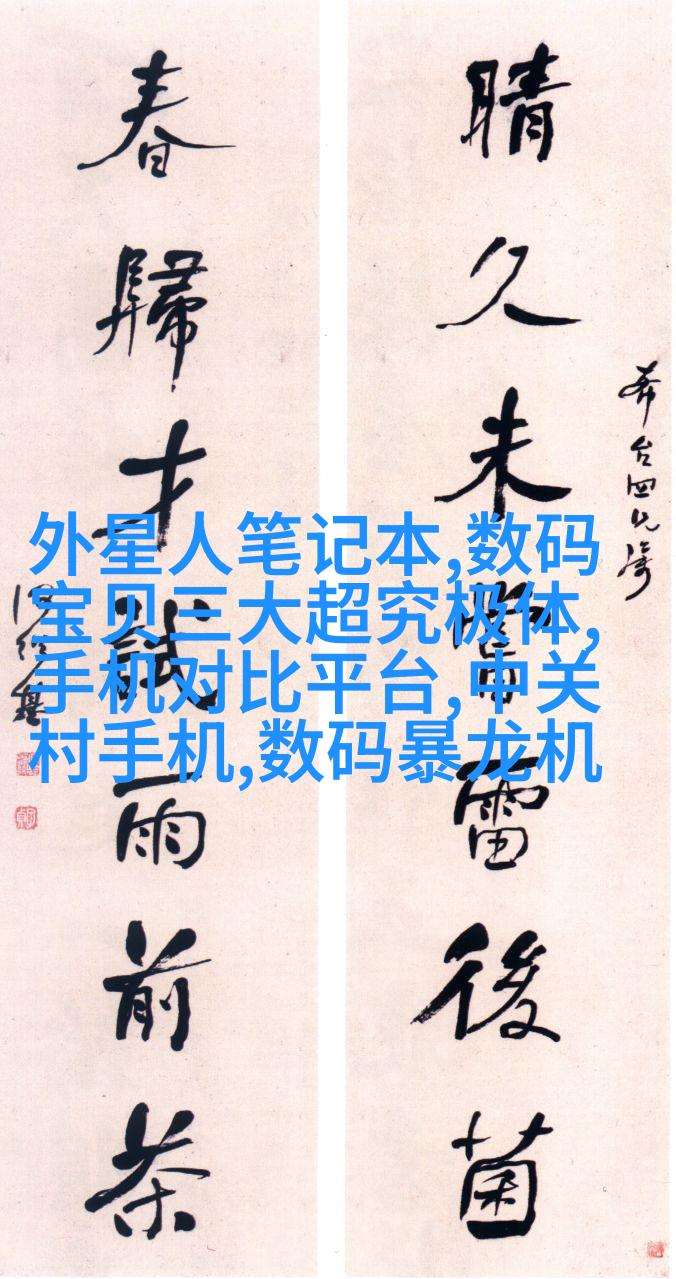 晴久未嘗雷後菌
春歸才試雨前茶
何紹基
外星人笔记本,数码
宝贝三大超究极体,
手机对比平台,中关
村手机,数码暴龙机